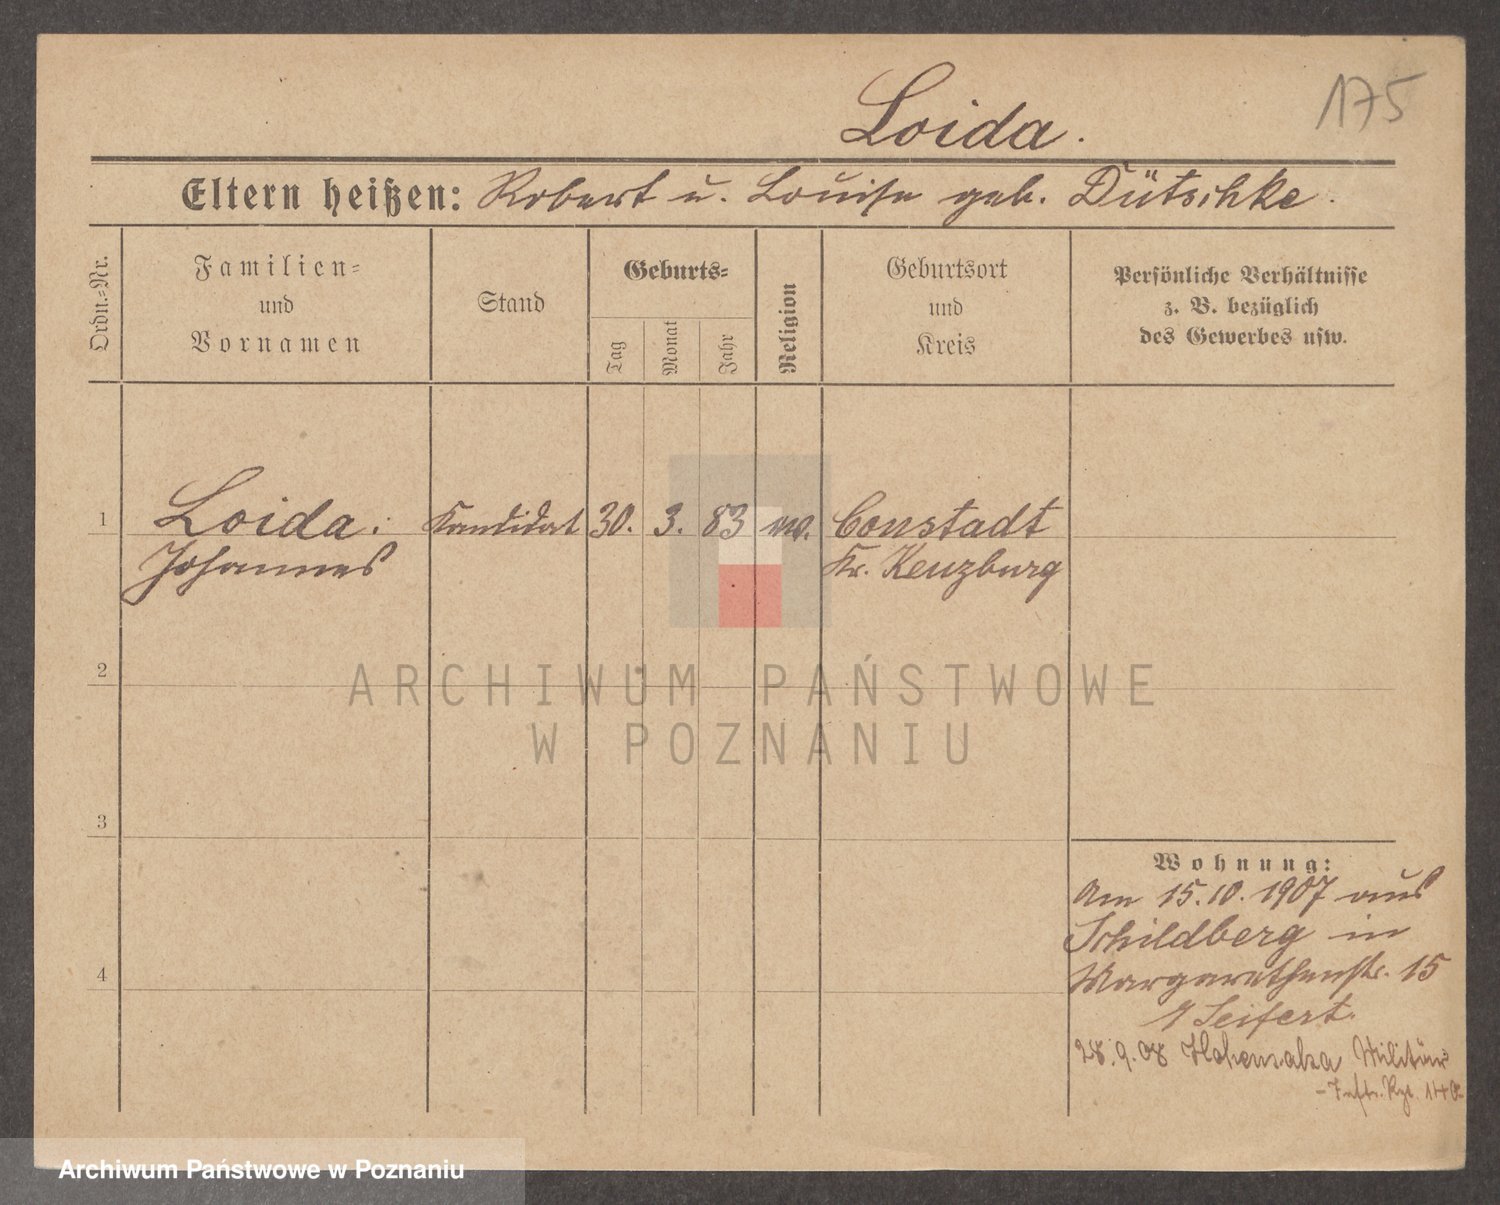 175
Loida.
Eltern heißen: Robert u. Louise geb. Dütschke.
Ordn.-Nr.
Familien-
und
Vornamen
Stand
Geburts-
Tag
Monat
Jahr
Religion
Geburtsort
und
Kreis
Persönliche Verhältnisse
z. B. bezüglich
des Gewerbes usw.
1 Loida. Kandidat 30. 3. 83 Constadt
Johannes Kr. Kreuzburg
2
ARCHIWUM PAŃSTWOWE
W POZNANIU
3
Wohnung:
Am 15.10.1907 aus
Schildberg in
4
Margarethenstr. 15
Seifert.
28.9.08 Hohensalza Militär
- Inftr. Rgt. 140
Archiwum Państwowe w Poznaniu